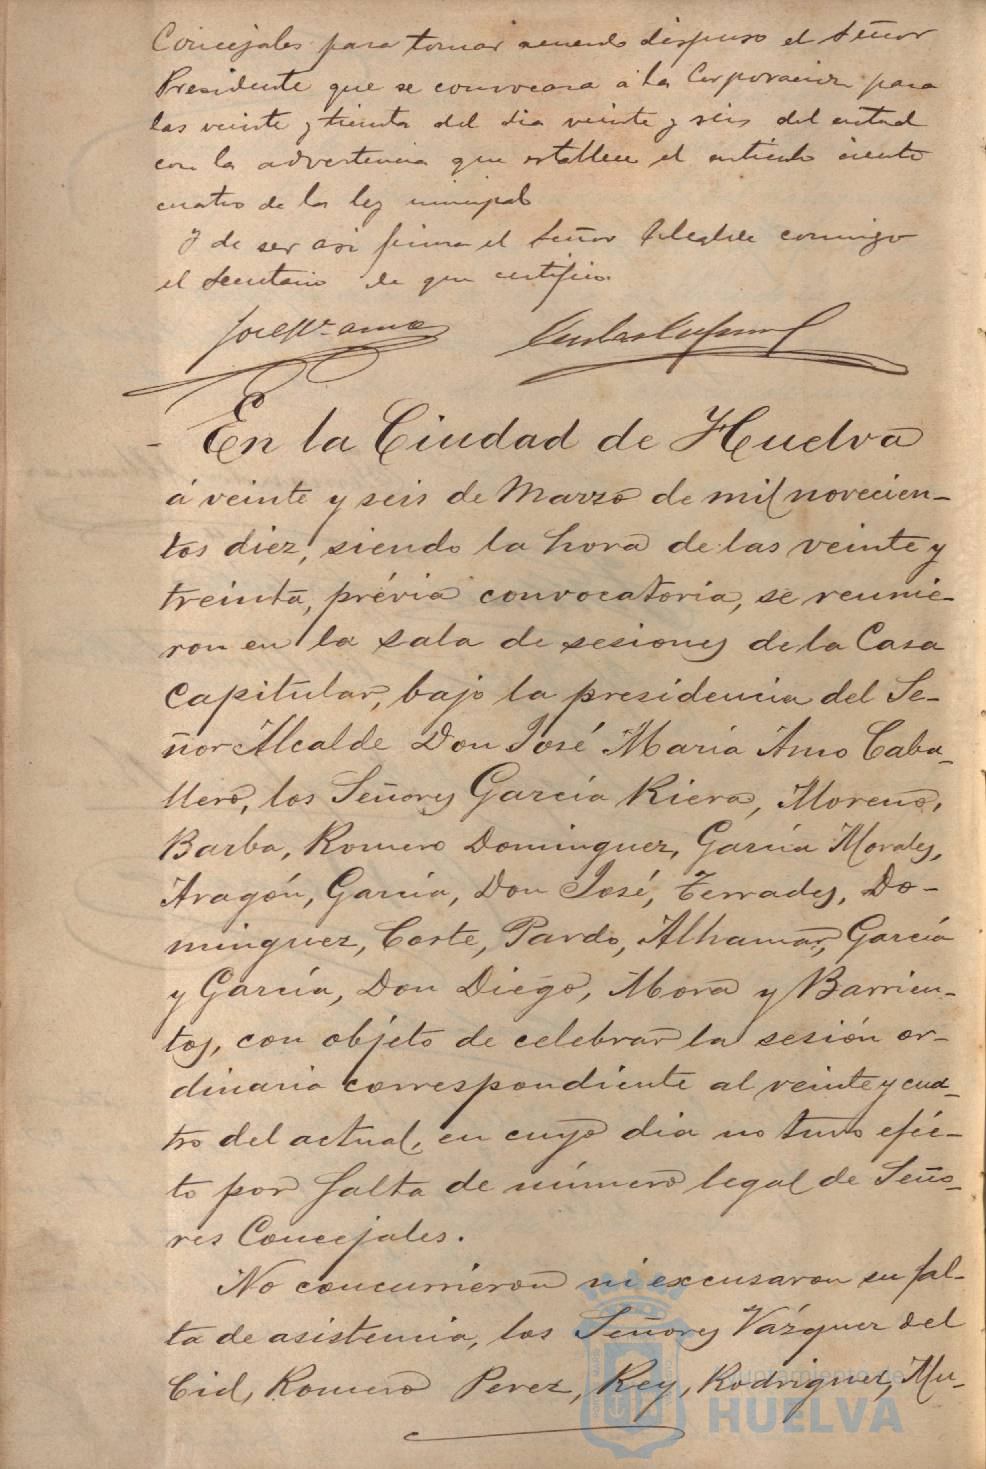 Concejales para tomar acuerdo dispuso el Señor
Presidente que se convocara á la Corporacion para
las veinte y treinta del dia veinte y seis del actual
con la advertencia que establece el articulo ciento
cuatro de la ley municipal
Y de ser asi firma el Señor Alcalde conmigo
el Secretario de que certifico.
José Mª. Amo
En la Ciudad de Huelva
á veinte y seis de Marzo de mil novecien-
tos diez, siendo la hora de las veinte y
treinta, prévia convocatoria, se reunie-
ron en la sala de sesiones de la Casa
Capitular, bajo la presidencia del Se-
ñor Alcalde Don José María Amo Caba-
llero, los Señores García Riera, Moreno,
Barba, Romero Dominguez, García Morales,
Aragón, García, Don José, Terrades, Do-
minguez, Coste, Pardo, Alhamar, García
y García, Don Diego, Mora y Barrien-
tos, con objeto de celebrar la sesión or-
dinaria correspondiente al veinte y cua-
tro del actual, en cuyo dia no tuvo efec-
to por falta de número legal de Seño-
res Concejales.
No concurrieron ni excusaron su fal-
ta de asistencia, los Señores Vázquez del
Cid, Romero Perez, Rey, Rodriguez, Mu-
Ayuntamiento de
HUELVA